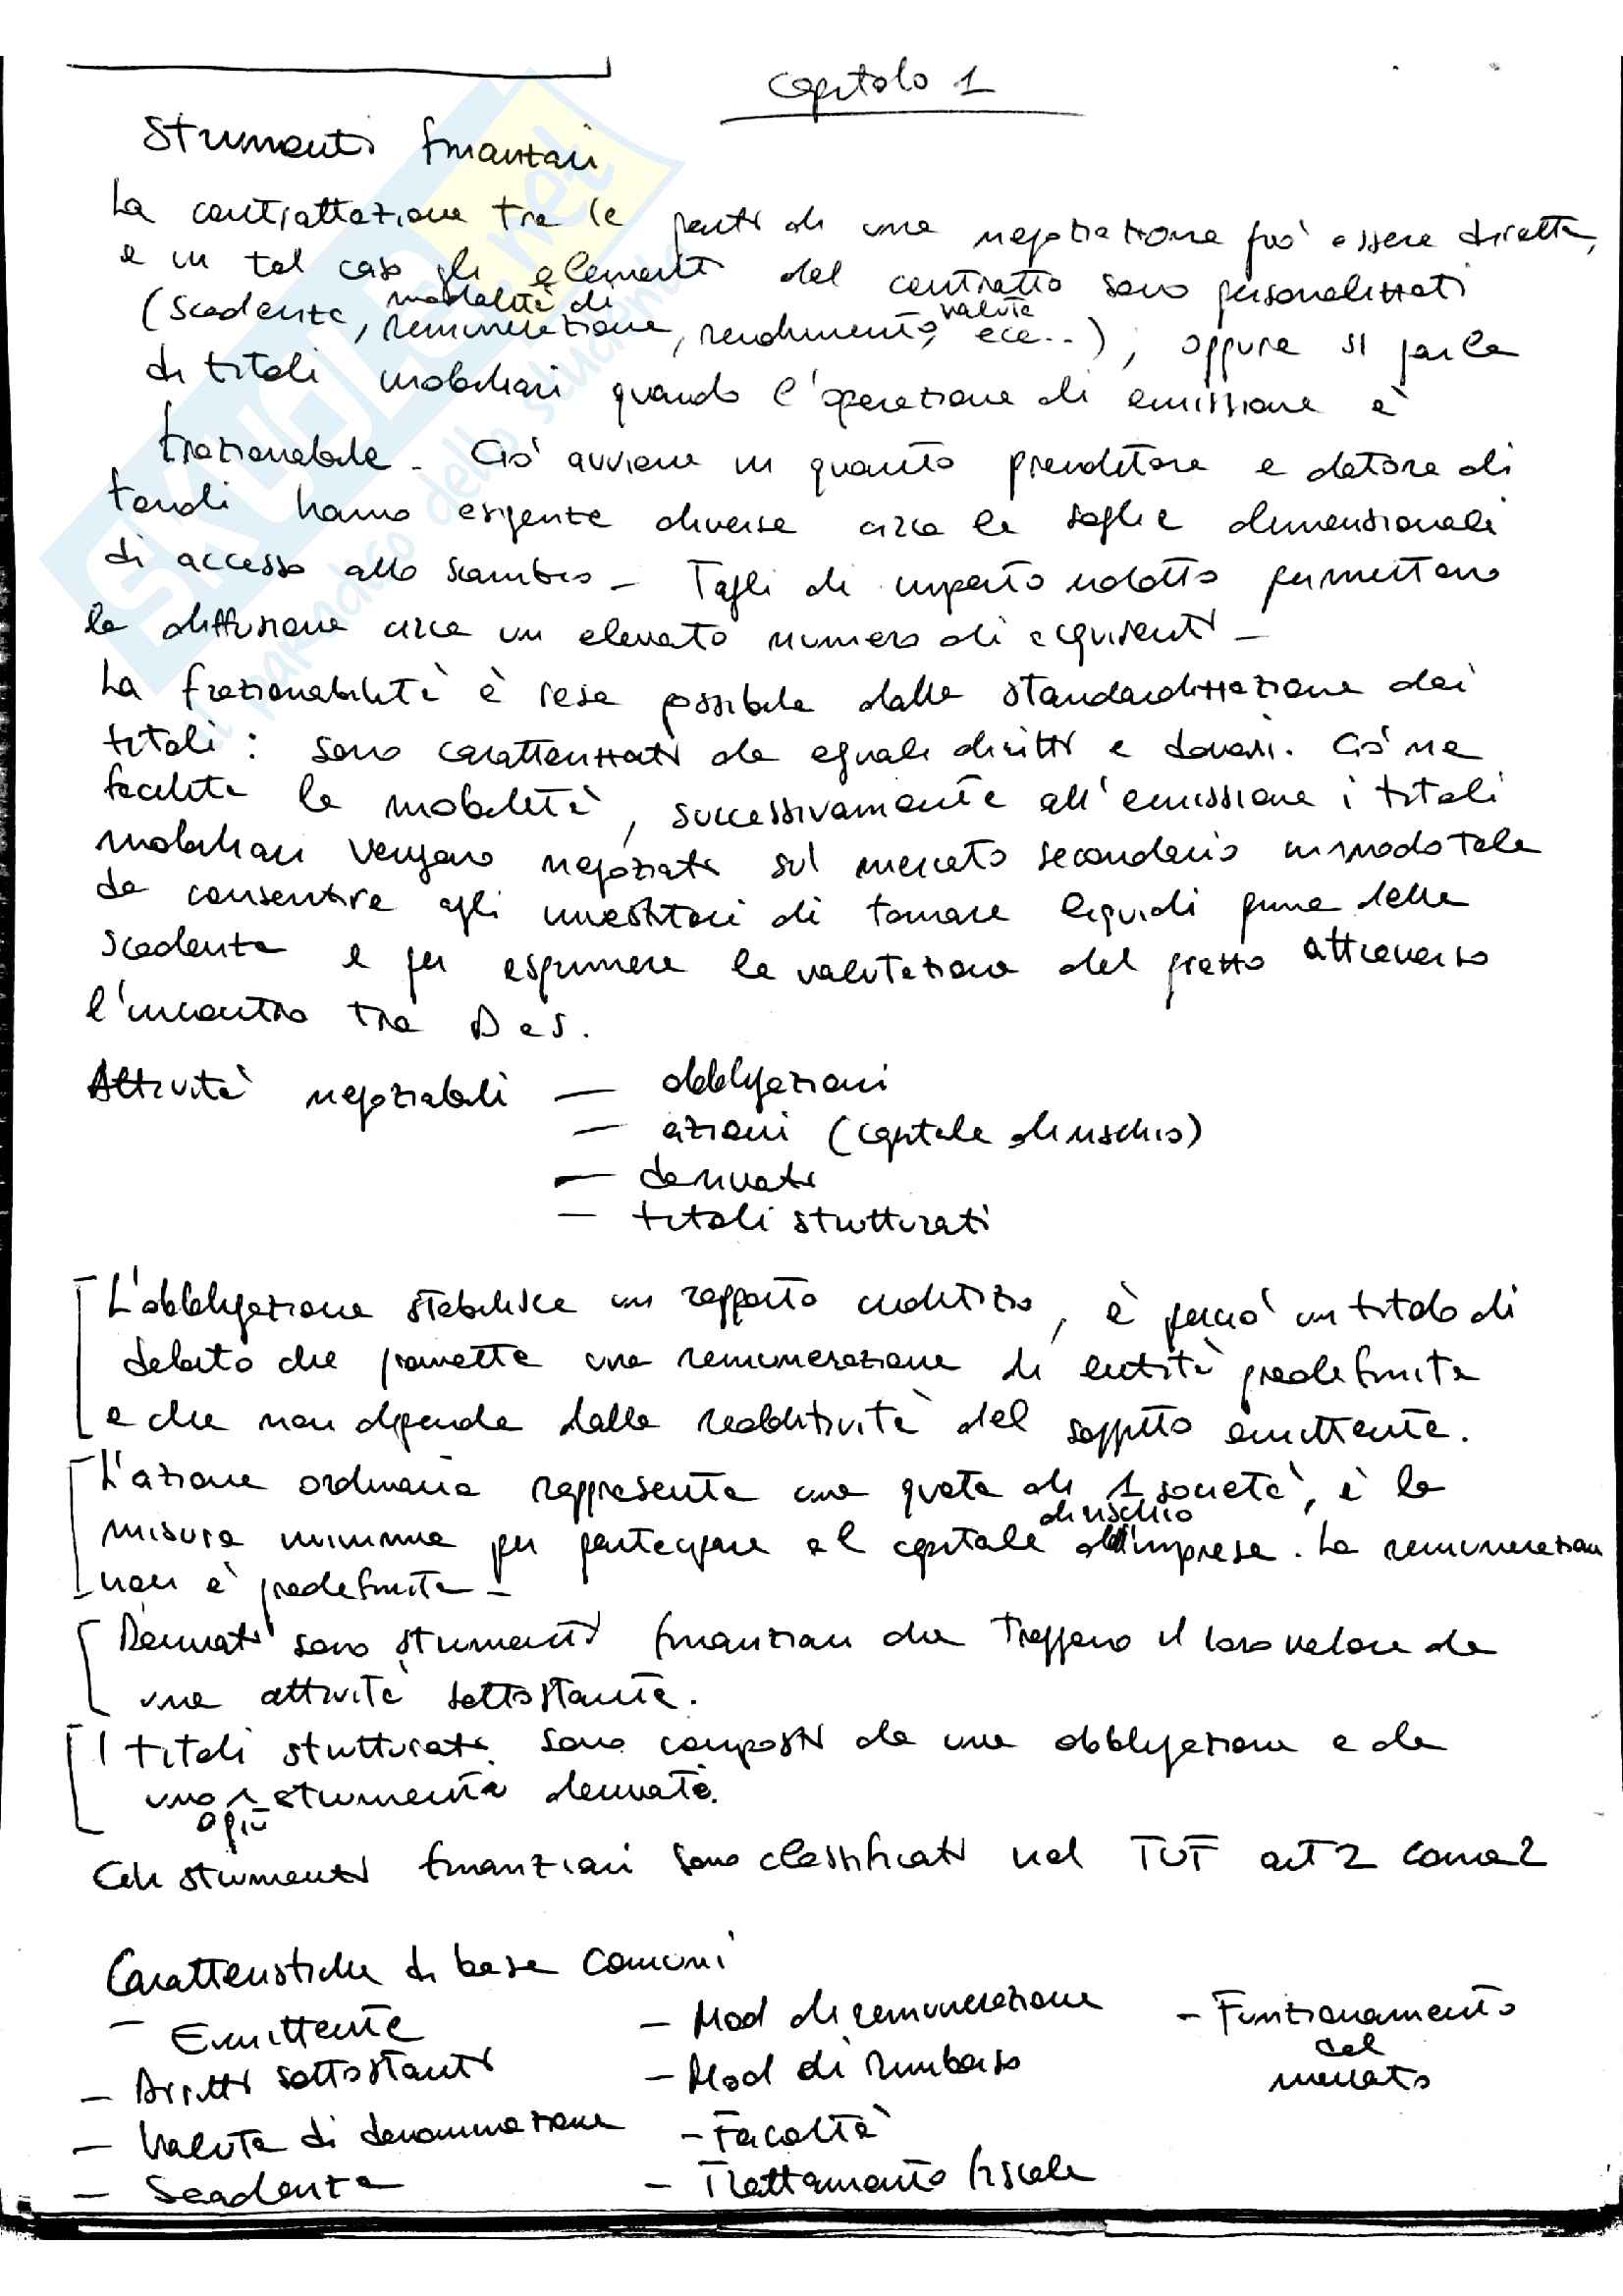 Capitolo 1
Strumenti finanziari
La contrattazione tra le parti di una negoziazione può essere diretta,
e in tal caso gli elementi del contratto sono personalizzati
(scadenza, modalità di remunerazione, rendimento, valuta ecc..), oppure si parla
di titoli mobiliari quando l'operazione di emissione è
frazionabile. Ciò avviene in quanto prenditore e datore di
fondi hanno esigenze diverse circa le soglie dimensionali
di accesso allo scambio - Tagli di importo ridotto permettono
la diffusione circa un elevato numero di acquirenti -
La frazionabilità è resa possibile dalla standardizzazione dei
titoli: sono caratterizzati da eguali diritti e doveri. Ciò ne
facilita la mobilità, successivamente all'emissione i titoli
mobiliari vengono negoziati sul mercato secondario in modo tale
da consentire agli investitori di tornare liquidi prima della
scadenza e per esprimere la valutazione del prezzo attraverso
l'incontro tra D e S.
Attività negoziabili — obbligazioni
— azioni (capitale di rischio)
— derivati
— titoli strutturati
L'obbligazione stabilisce un rapporto creditizio, è perciò un titolo di
debito che promette una remunerazione di entità predefinita
e che non dipende dalla redditività del soggetto emittente.
L'azione ordinaria rappresenta una quota di 1 società, è la
misura minima per partecipare al capitale di rischio d'impresa. La remunerazione
non è predefinita -
Derivati sono strumenti finanziari che traggono il loro valore da
una attività sottostante.
I titoli strutturati sono composti da una obbligazione e da
uno o più strumenti derivati.
Gli strumenti finanziari sono classificati nel TUF art 2 coma 2
Caratteristiche di base comuni
- Emittente
- Diritti sottostanti
- Valuta di denominazione
- Scadenza
- Mod di remunerazione
- Mod di rimborso
- Facoltà
- Trattamento fiscale
- Funzionamento
del
mercato
SKUOLA.net
il paradiso dello studente